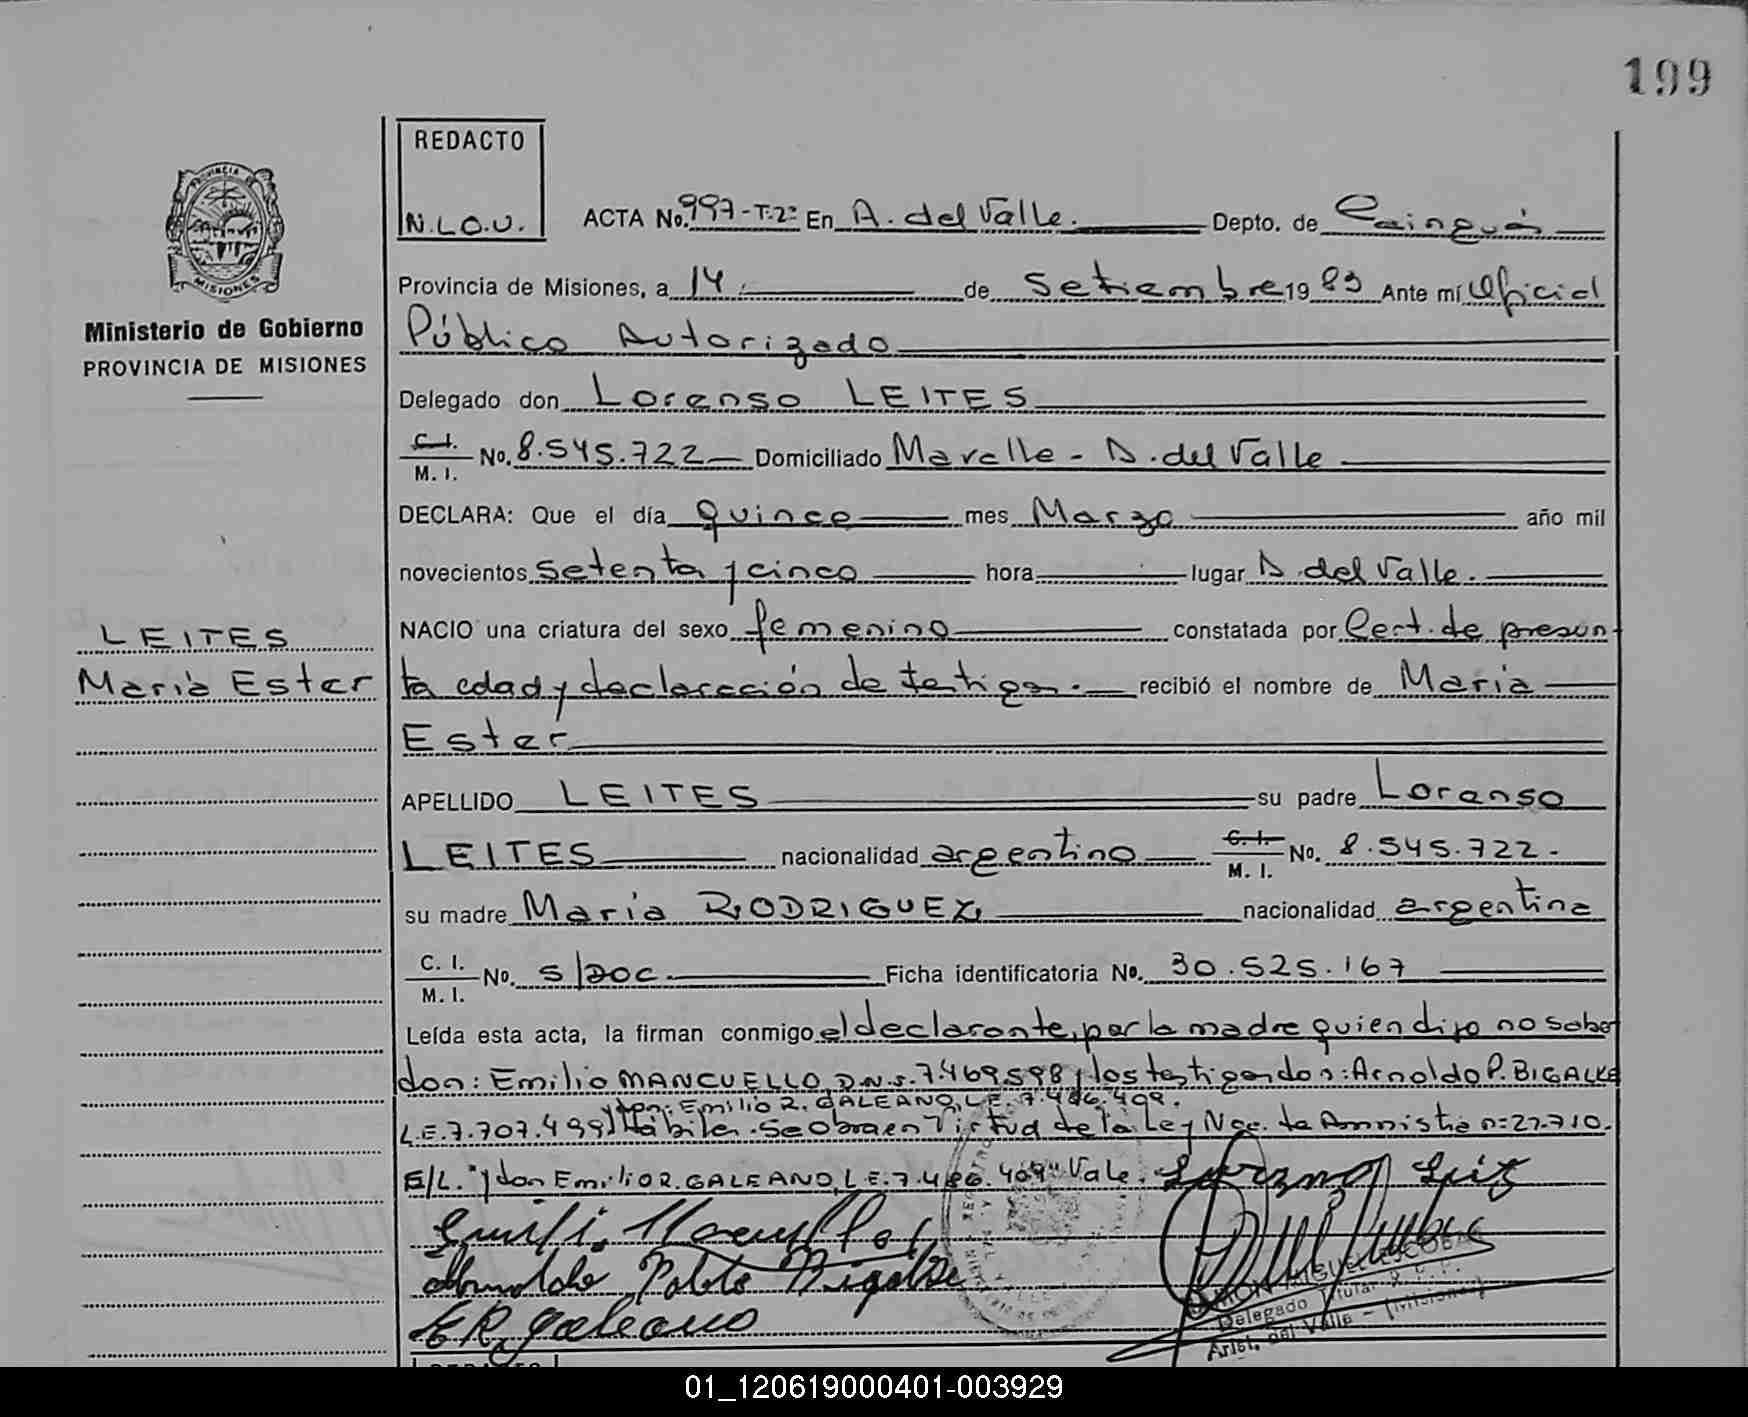 199
REDACTO
N.L.O.U.
ACTA No. 997-T.2º En A. del Valle. Depto. de Cainguás
Provincia de Misiones, a 14 de Setiembre 1983 Ante mí Oficial
Público Autorizado
Delegado don Lorenso LEITES
C. I.
M. I. No. 8.545.722 Domiciliado Mavalle - A. del Valle
DECLARA: Que el día quince mes Marzo año mil
novecientos setenta y cinco hora lugar A. del Valle.
NACIO una criatura del sexo femenino constatada por Cert. de presun
ta edad y declaración de testigos. recibió el nombre de Maria
Ester
APELLIDO LEITES su padre Lorenso
LEITES nacionalidad argentino C. I.
M. I. No. 8.545.722.
su madre Maria RODRIGUEZ nacionalidad argentina
C. I.
M. I. No. s/doc. Ficha identificatoria No. 30.525.167
Leída esta acta, la firman conmigo el declarante, por la madre quien dijo no saber
don: Emilio MANCUELLO, D.N.I. 7.469.598 y los testigos don: Arnoldo P. BIGALKE
y don: Emilio R. GALEANO, L.E. 7.486.409.
L.E. 7.707.499 Hábiles. Se Obra en Virtud de la Ley Nac. de Amnistia nº 22.710.
E/L. "y don Emilio R. GALEANO, L.E. 7.486.409" Vale.
Arnoldo Pablo Bigalke
E R Galeano
RAMON MIGUEL ESCOBAR
Delegado Titular R. P. P.
Arist. del Valle - (Misiones)
PROVINCIA DE
MISIONES
Ministerio de Gobierno
PROVINCIA DE MISIONES
LEITES
Maria Ester
01_120619000401-003929